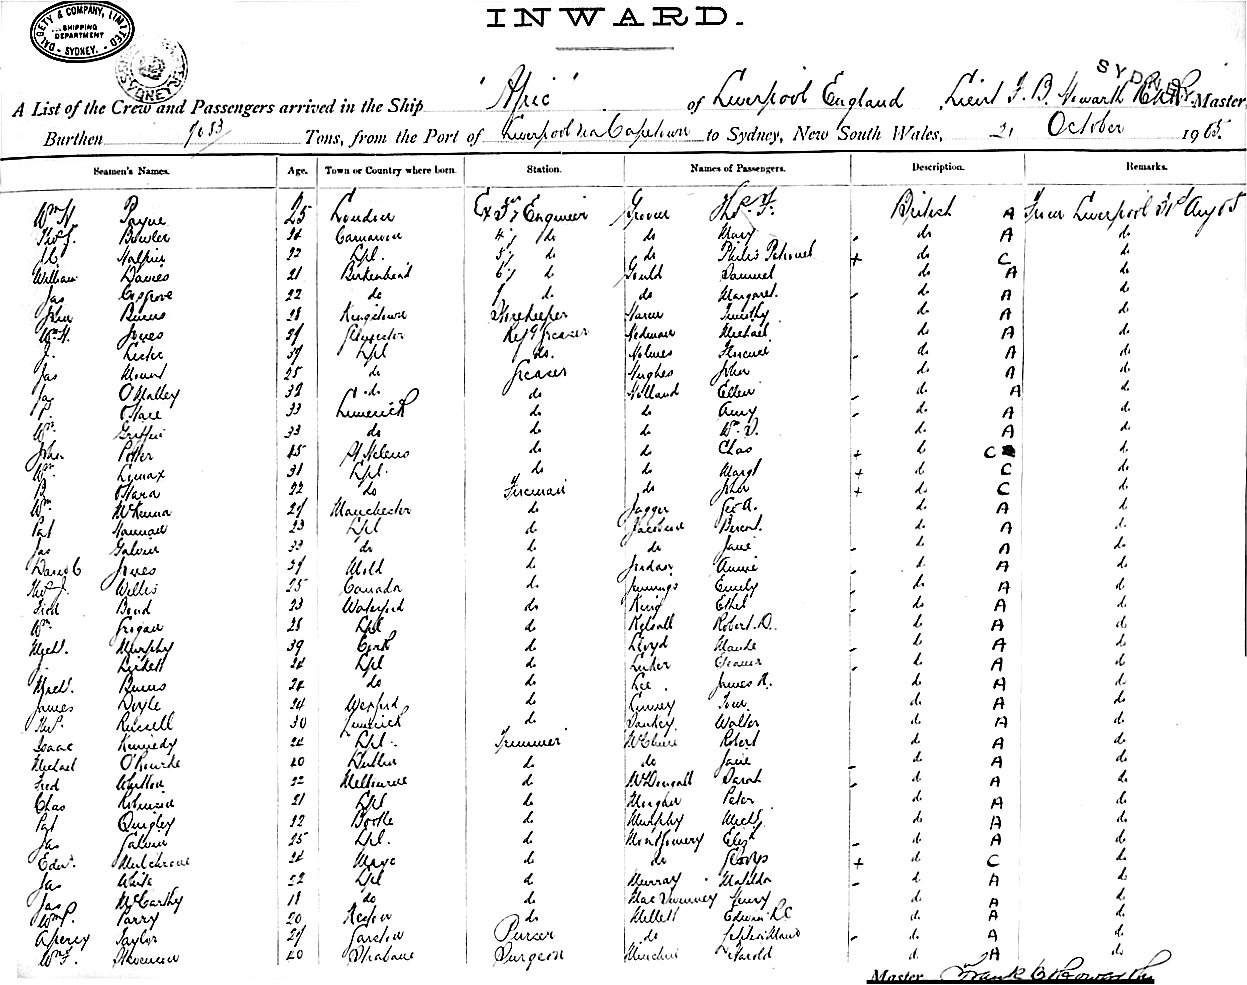 DALGETY & COMPANY, LIMITED
SHIPPING
DEPARTMENT
SYDNEY.
INWARD.
SYDNEY
A List of the Crew and Passengers arrived in the Ship "Afric" of Liverpool England Lieut F. B. Howarth RNR Master,
Burthen Tons, from the Port of Liverpool via Capetown to Sydney, New South Wales, 21 October 1905.
Seamen's Names. Age. Town or Country where born. Station. Names of Passengers. Description. Remarks.
Wm H. Payne 25 London Ex 3rd Engineer Thos. F. British A From Liverpool 31st Aug 05
Thos J. Bowler 24 Carnarvon 4th do do Mary do A do
Halpin 22 Lpl. 5th do do do C do
William Davies 21 Birkenhead 6th do Gould Samuel do A do
Jas Cosgrove 22 do do do Margaret. do A do
John Burns 28 Kingstown Storekeeper Timothy do A do
Wm H. Jones Gloucester Refg Greaser Michael do A do
J. Lester 39 Lpl do. Holmes Florence do A do
Jas Mount 25 do Greaser Hughes John do A do
Jas O'Malley 32 do do Holland Ellen do A do
P. O'Hare 33 Limerick do do Amy do A do
Wm. Griffin 33 do do do Wm. V. do A do
John Potter 45 St Helens do do Chas do C do
Wm. Lomax 31 Lpl. do do Margt do C do
B. O'Hara 22 do Fireman do John do C do
Wm. McKenna 27 Manchester do Jagger Geo A. do A do
Pat Hannan 23 Lpl do do A do
Jas Galvin 33 do do do Jane do A do
David C Jones 39 Mold do Jordan Annie do A do
Thos J. Willis 25 Canada do Jennings Emily do A do
Fred Bond 23 Waterford do King Ethel do A do
Wm. Grogan 28 Lpl do Kelsall Robert D. do A do
Michl. Murphy 39 Cork do Lloyd Maude do A do
J. 24 Lpl do Luker Eleanor do A do
Michl. Burns 24 do do Lee James A. do A do
James Doyle 24 Wexford do Tom do A do
Thos. Russell 30 Limerick do Sankey Walter do A do
Isaac Kennedy 24 Lpl. Trimmer McClure Robert do A do
Michael O'Rourke 40 Dublin do do Jane do A do
Fred Whitton 22 Melbourne do McDougall Sarah do A do
Chas Robinson 21 Lpl do Meagher Peter do A do
Pat Quigley 32 Bootle do Murphy Michl. do A do
Jas Galvin 25 Lpl. do Montgomery Elizth do A do
Edwd. Mulchrone 24 Mayo do do Gladys do C do
Jas White 22 Lpl do Murray Matilda do A do
Jas McCarthy 18 do do MacSweeney Henry do A do
Wm P. Parry 20 do Mellett Edwin R C do A do
Taylor 27 Garston Purser do do A do
Wm F. 40 Brisbane Surgeon Harold do A do
Master Frank B Howarth